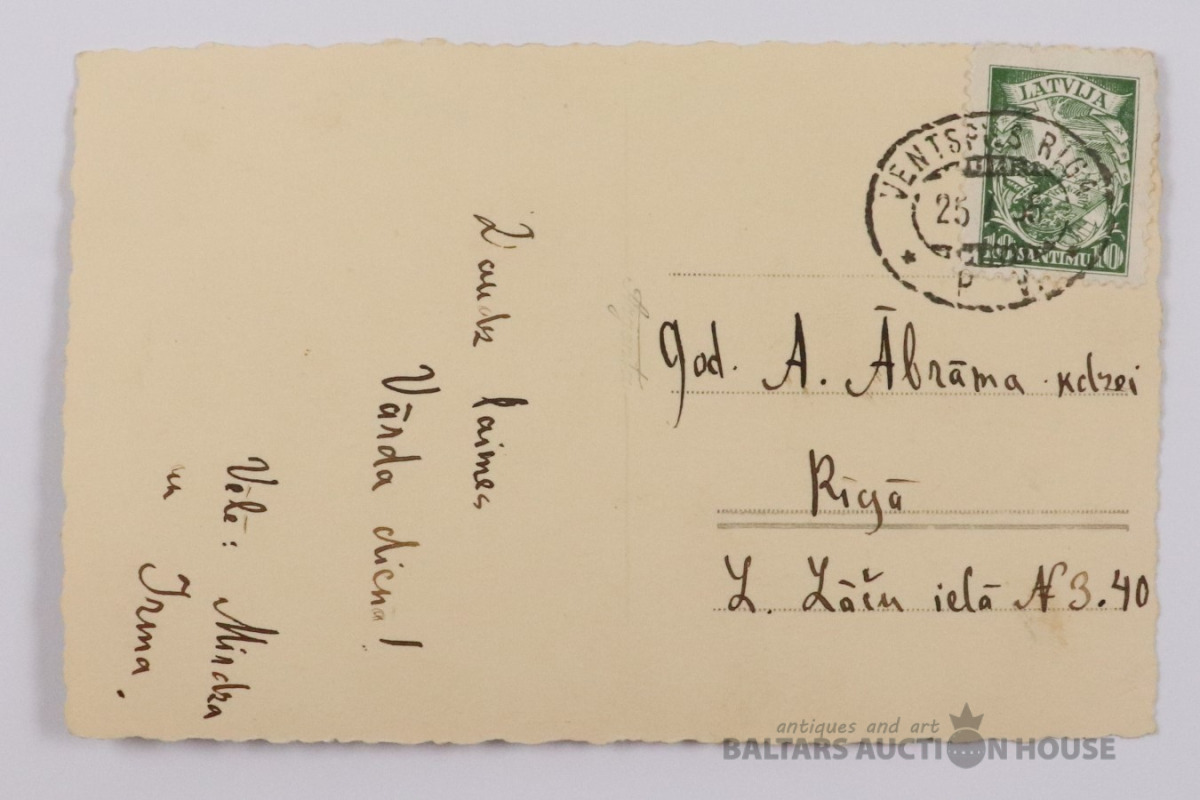 Daudz laimes
Vārda dienā!
Vēlē: Mirdza
un Irma.
LATVIJA
10 SANTIMU 10
VENTSPILS RIGA
25 35
P V
god. A. Ābrāma kdzei
Rīgā
L. Lāču ielā № 3.40
antiques and art
BALTARS AUCTION HOUSE